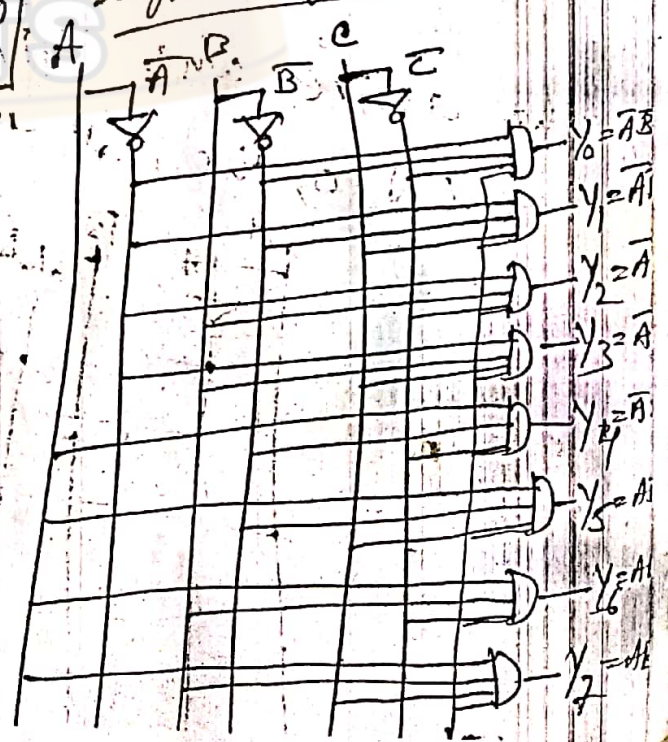 A A̅ B B̅ C C̅
Y₀ = A̅B̅
Y₁ = A̅
Y₂ = A̅
Y₃ = A̅
Y₄ = A̅
Y₅ = A
Y₆ = A
Y₇ = A